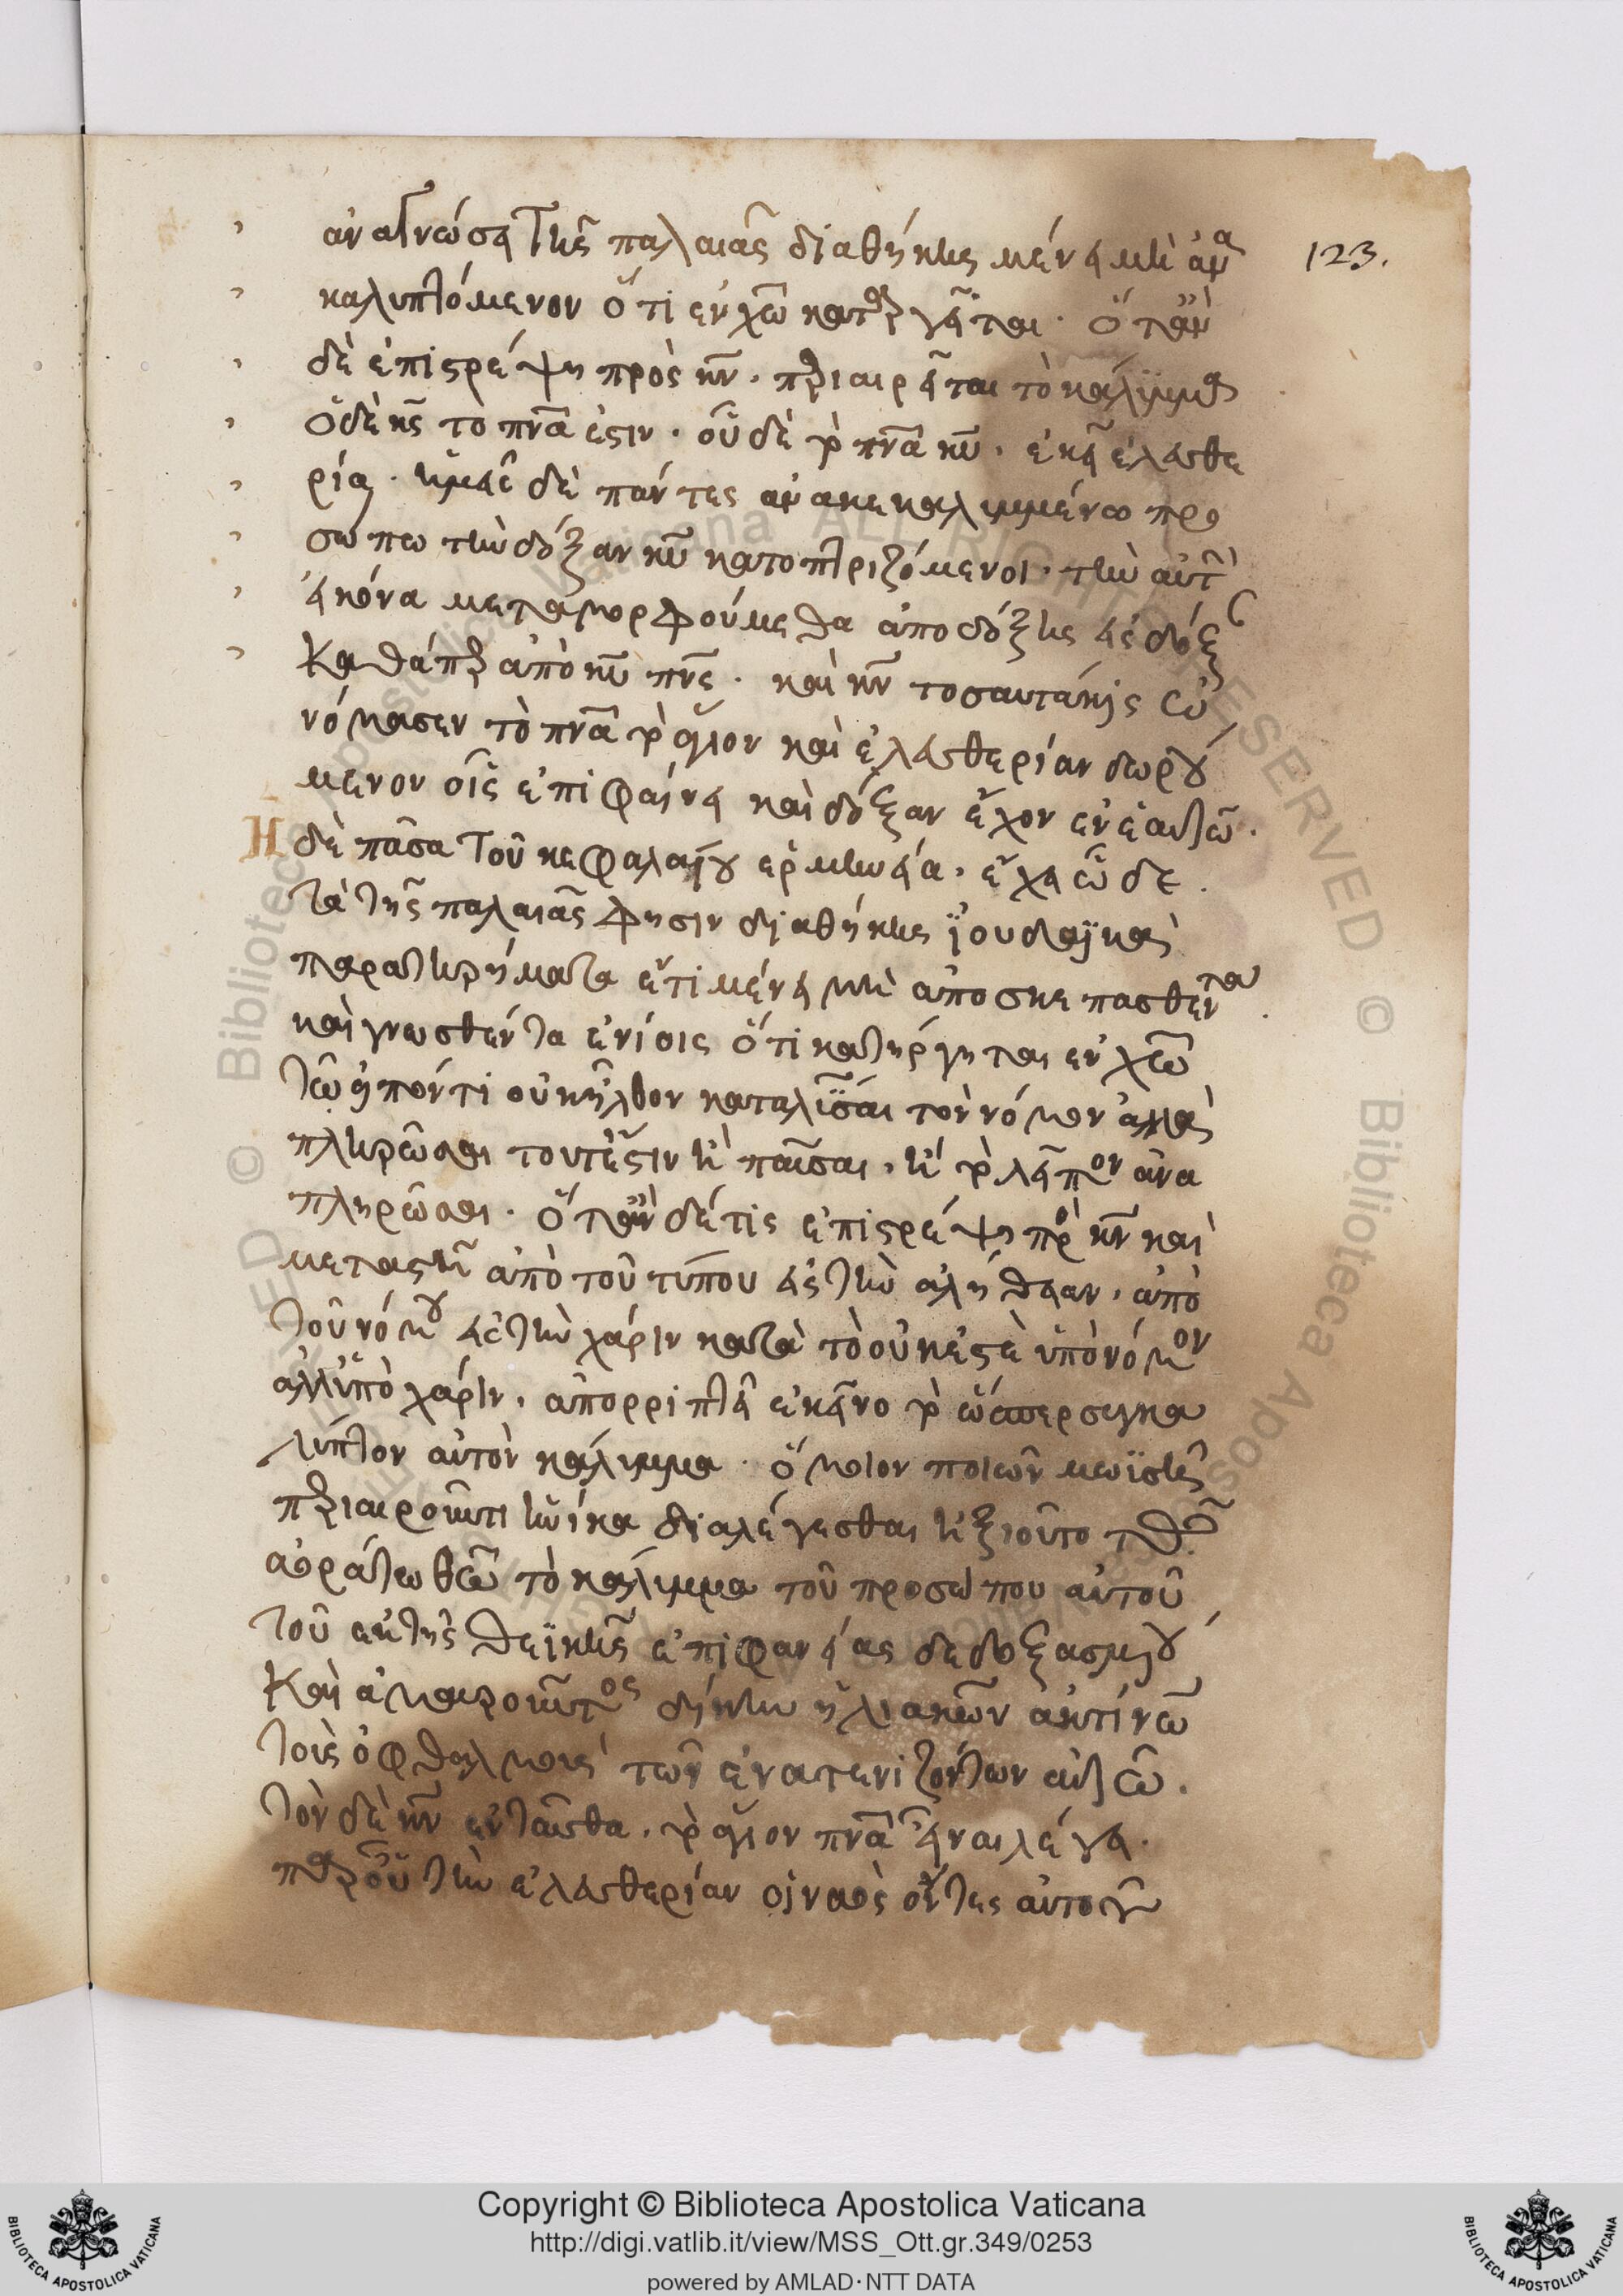 123.
ἀναγνώσει τῆς παλαιᾶς διαθήκης μένει μὴ ἀνα
καλυπτόμενον ὅτι ἐν χῶ καταργεῖται· ὅταν
δὲ ἐπιστρέψη πρὸς κν̅· περιαιρεῖται τὸ κάλυμμα
ὁ δὲ κς̅ τὸ πνα̅ ἐστιν· οὗ δὲ τὸ πνα̅ κυ̅· ἐκεῖ ἐλευθε
ρία· ἡμεῖς δὲ πάντες ἀνακεκαλυμμένω προ
σώπω τὴν δόξαν κυ̅ κατοπτριζόμενοι· τὴν αὐτὴν
εἰκόνα μεταμορφούμεθα ἀπὸ δόξης εἰς δόξαν
Καθάπερ ἀπὸ κυ̅ πνς̅· καὶ κν̅ τοσαυτάκις ὠ
νόμασεν τὸ πνα̅ τὸ ἅγιον καὶ ἐλευθερίαν δωρού
μενον οἷς ἐπιφαίνει καὶ δόξαν ἔχον ἐν ἑαυτῶ·
Η δὲ πᾶσα τοῦ κεφαλαίου ἑρμηνεία· ἔχει ὧδε·
Τὰ τῆς παλαιᾶς φησιν διαθήκης ἰουδαϊκὰ
παρατηρήματα ἔτι μένει μὴ ἀποσκεπασθέντα
καὶ γνωσθέντα ἐνίοις ὅτι κατήργηται ἐν χω̅
τῶ εἰπόντι οὐκ ἦλθον καταλῦσαι τὸν νόμον ἀλλὰ
πληρῶσαι τουτέστιν ἢ παῦσαι· ἢ τὸ λεῖπον ἀνα
πληρῶσαι· ὅταν δέ τις ἐπιστρέψη πρὸς κν̅ καὶ
μεταστῆ ἀπὸ τοῦ τύπου εἰς τὴν ἀλήθειαν· ἀπὸ
τοῦ νόμου εἰς τὴν χάριν κατὰ τὸ οὐκ ἐστὲ ὑπὸ νόμον
ἀλλ' ὑπὸ χάριν· ἀπορριπτεῖ ἐκεῖνο τὸ ὥσπερ συγκα
λύπτον αὐτὸν κάλυμμα· ὅμοιον ποιῶν μωϋσῆ
περιαιροῦντι ἡνίκα διαλέγεσθαι ἠξιοῦτο τῶ
ἀοράτω θεῶ τὸ κάλυμμα τοῦ προσώπου αὐτοῦ
τοῦ ἐκ τῆς θεϊκῆς ἐπιφανείας δεδοξασμένου
Καὶ ἀμαυροῦντος δίκην ἡλιακῶν ἀκτίνων
τοῖς ὀφθαλμοῖς τῶν ἐνατενιζόντων αὐτῶ·
τὸν δὲ κν̅ ἐνταῦθα· τὸ ἅγιον πνα̅ εἶναι λέγει·
παρ' οὗ τὴν ἐλευθερίαν οἱ ναὸς ὄντες αὐτοῦ
Copyright © Biblioteca Apostolica Vaticana
http://digi.vatlib.it/view/MSS_Ott.gr.349/0253
powered by AMLAD·NTT DATA
BIBLIOTECA APOSTOLICA VATICANA
BIBLIOTECA APOSTOLICA VATICANA